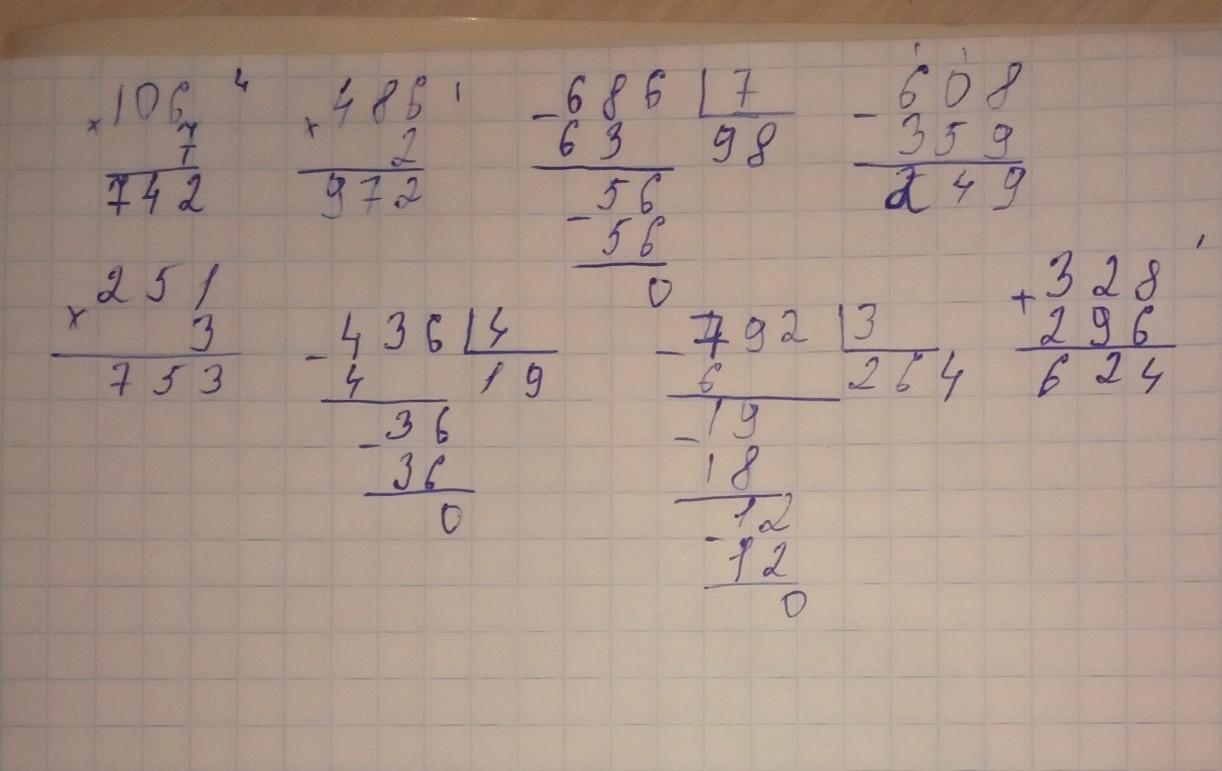 106 4
× 7
742
486 1
× 2
972
- 686 | 7
63 98
56
- 56
0
- 608
359
249
251
× 3
753
- 436 | 4
4 19
- 36
36
0
- 792 | 3
6 264
- 19
18
12
- 12
0
+ 328
296
624